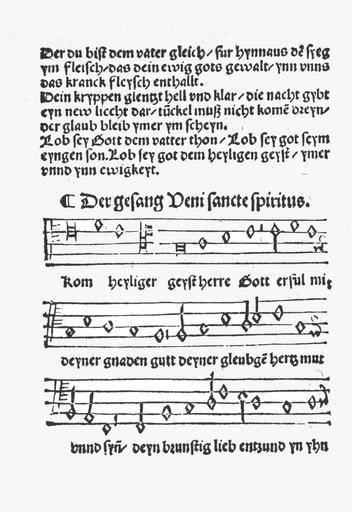 Der du bist dem vater gleich/ fur hynnaus dē syeg
ym fleisch/das dein ewig gots gewalt/ ynn vnns
das kranck fleysch enthallt.
Dein kryppen glentzt hell vnd klar/ die nacht gybt
eyn new liecht dar/ tūckel muß nicht komē dreyn/
der glaub bleib ymer ym scheyn.
Lob sey Gott dem vater thon/ Lob sey got seym
eyngen son. Lob sey got dem heyligen geyst/ ymer
vnnd ynn ewigkeyt.
¶ Der gesang Veni sancte spiritus.
Kom heyliger geyst herre Gott erful mit
deyner gnaden gutt deyner gleubgē hertz mut
vnnd syn/ deyn brunstig lieb entzund yn yhn